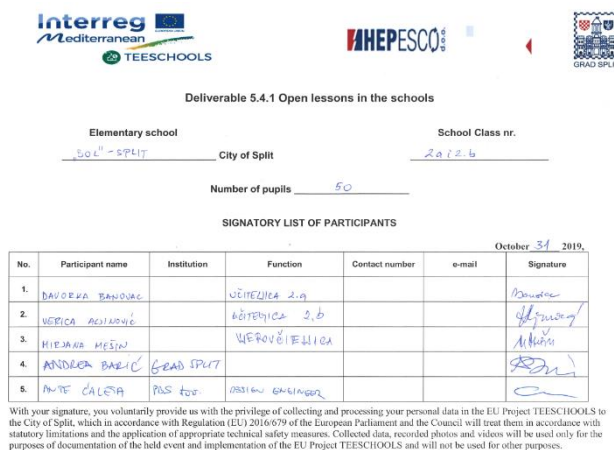 Interreg
Mediterranean
TEESCHOOLS
HEP ESCO d.o.o.
GRAD SPLIT
Deliverable 5.4.1 Open lessons in the schools
Elementary school School Class nr.
"BOL" - SPLIT City of Split 2a i 2.b
Number of pupils 50
SIGNATORY LIST OF PARTICIPANTS
October 31 2019,
No. Participant name Institution Function Contact number e-mail Signature
1. DAVORKA BANOVAC UČITELJICA 2.a Banovac
2. VERICA UČITELJICA 2.b
3. MIRJANA MEŠIN VJEROUČITELJICA
4. ANDREA BARIĆ GRAD SPLIT
5. ANTE ĆALETA DESIGN ENGINEER
With your signature, you voluntarily provide us with the privilege of collecting and processing your personal data in the EU Project TEESCHOOLS to
the City of Split, which in accordance with Regulation (EU) 2016/679 of the European Parliament and the Council will treat them in accordance with
statutory limitations and the application of appropriate technical safety measures. Collected data, recorded photos and videos will be used only for the
purposes of documentation of the held event and implementation of the EU Project TEESCHOOLS and will not be used for other purposes.